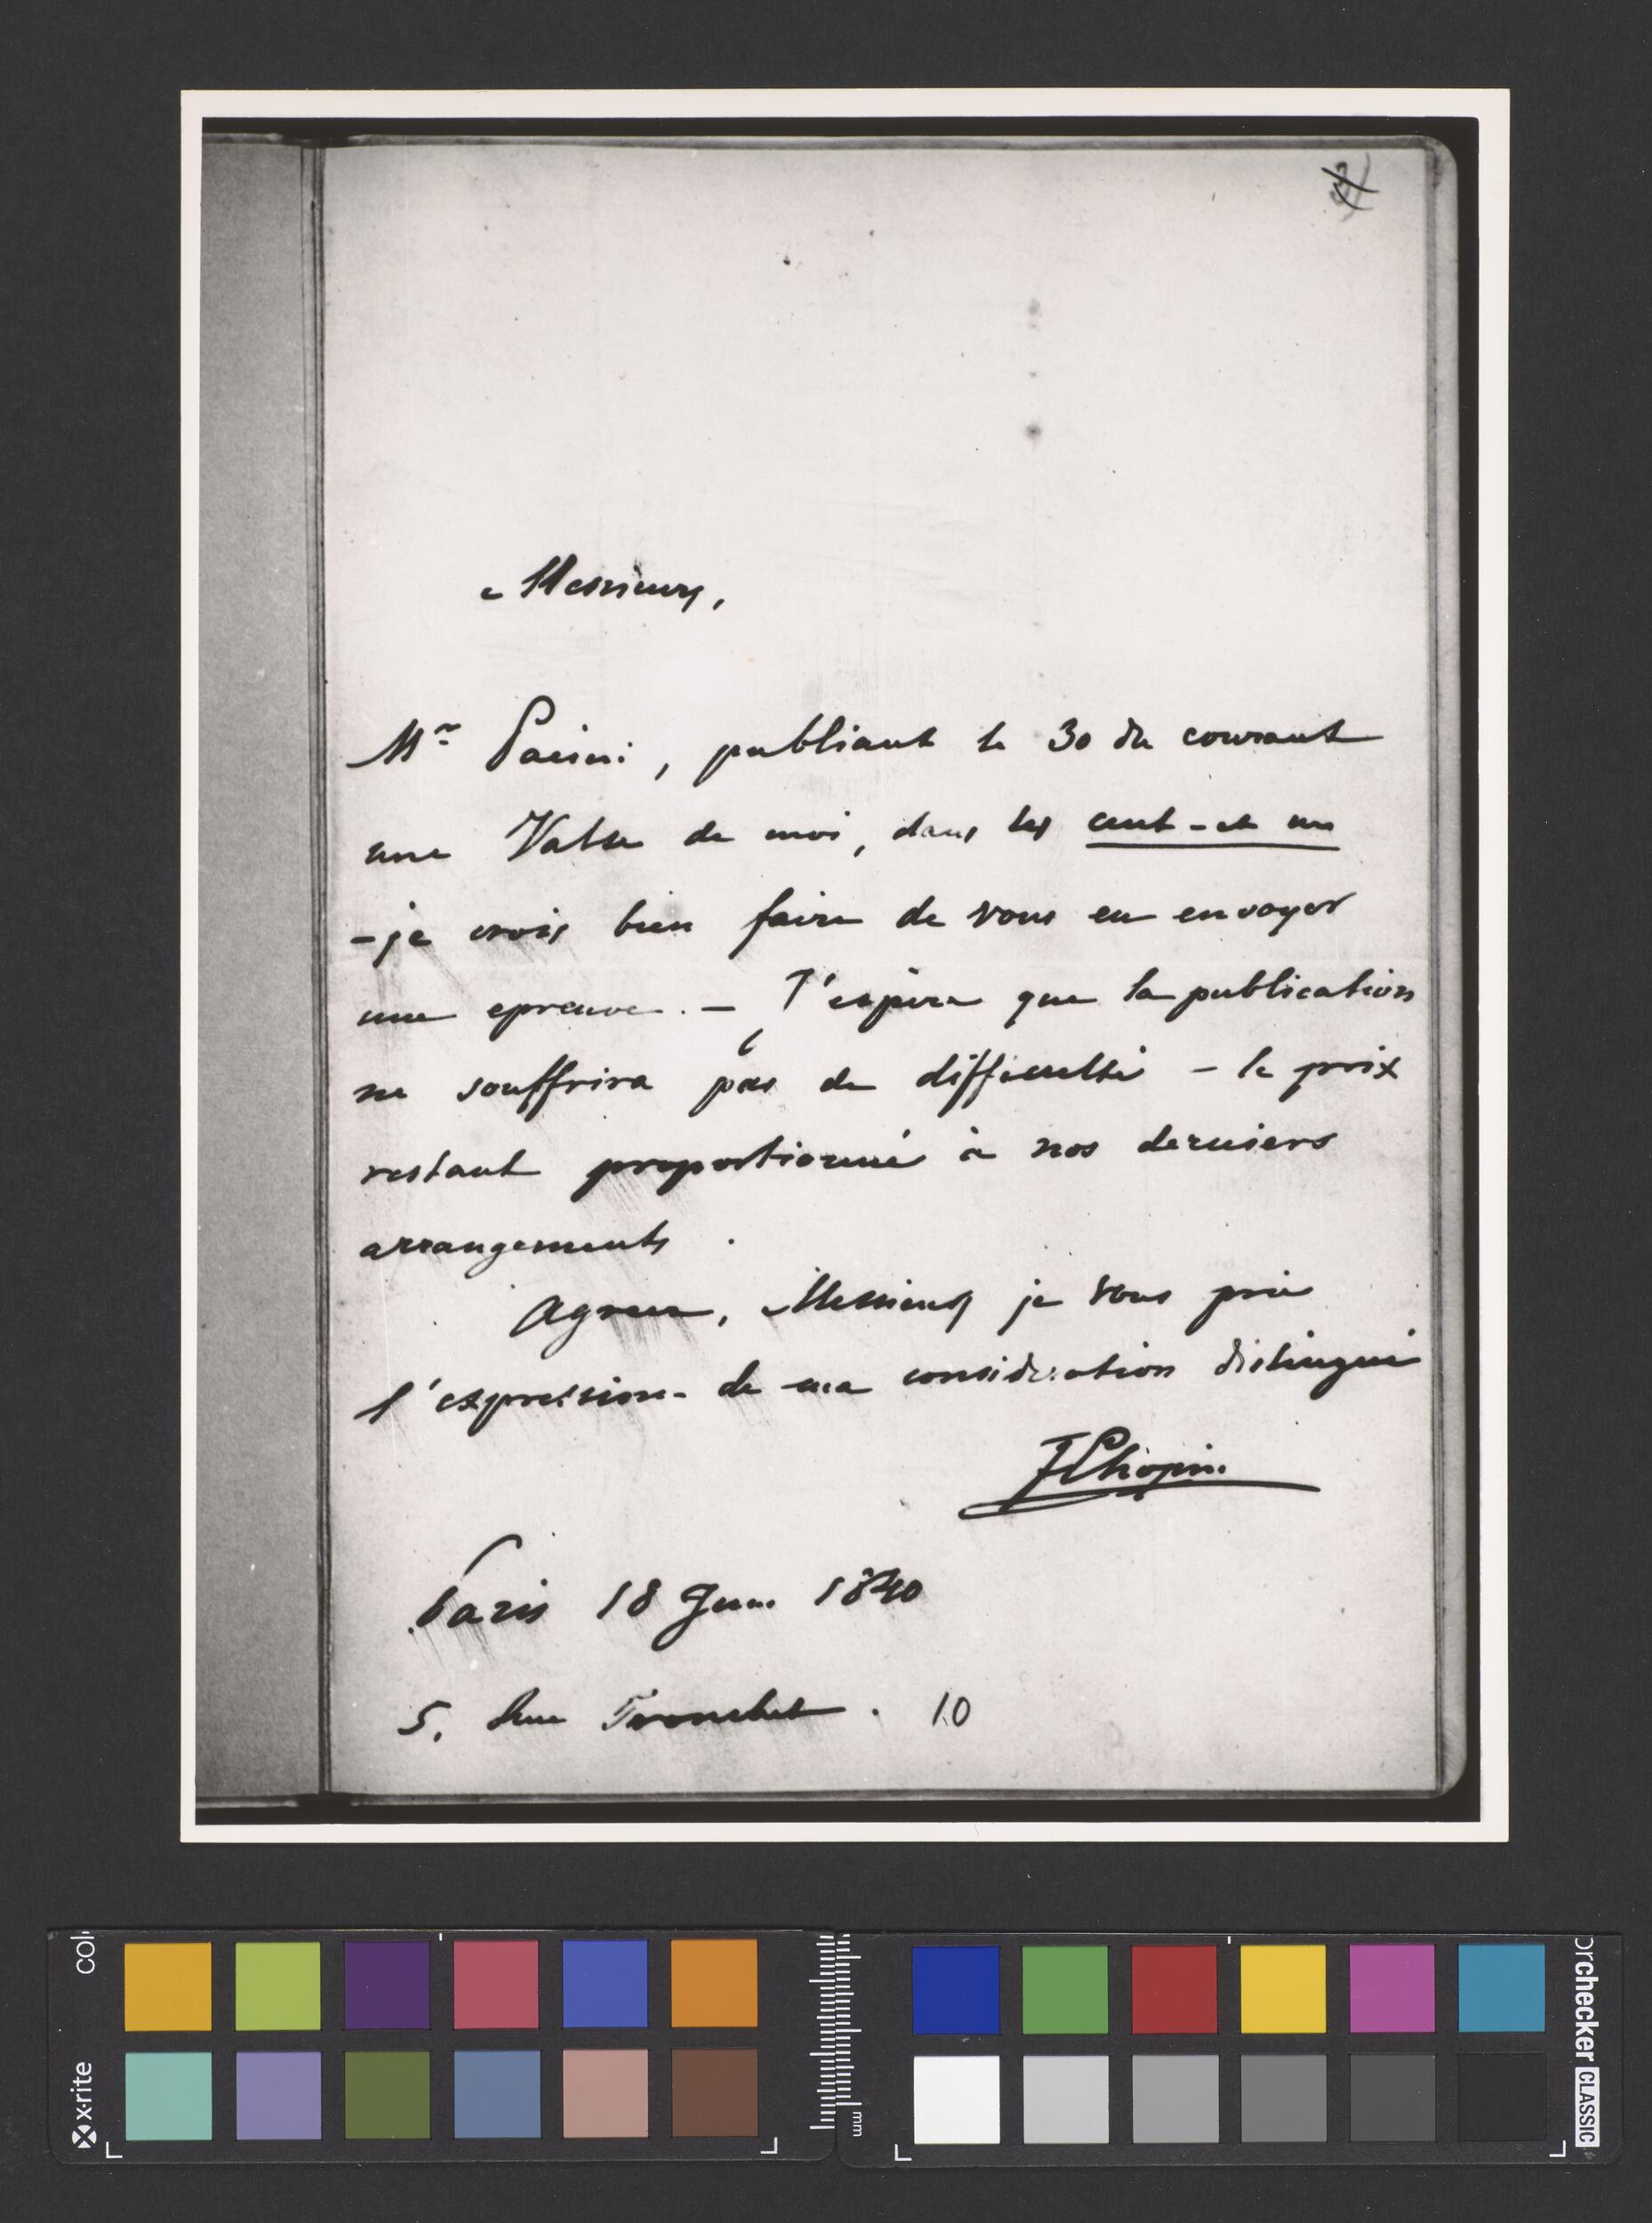 Messieurs,
Mr Pacini, publiant le 30 du courant
une Valse de moi, dans les cent-et un
- je crois bien faire de vous en envoyer
une epreuve. - J'espère que la publication
ne souffrira pas de difficulté - le prix
restant proportionné à nos derniers
arrangements.
Agreer, Messieurs je vous prie
l'expression de ma consideration distingué
FChopin.
Paris 18 Juin 1840
5. Rue Tronchet. 10
x-rite
col
mm
orchecker CLASSIC